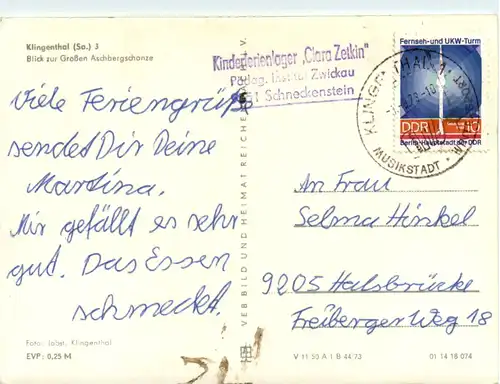 Klingenthal (Sa.) 3
Blick zur Großen Aschbergschanze
Kinderferienlager „Clara Zetkin"
Pädag. Institut Zwickau
Schneckenstein
Viele Feriengrüße
sendet Dir Deine
Martina.
Mir gefällt es sehr
gut. Das Essen
schmeckt.
Foto: Jobst, Klingenthal
EVP: 0,25 M
VEB BILD UND HEIMAT REICHENBACH I. V.
Fernseh- und UKW-Turm
DDR 10
Berlin-Hauptstadt der DDR
KLINGENTHAL
MUSIKSTADT
An Frau
Selma Hinkel
9205 Halsbrücke
Freiberger Weg 18
V 11 50 A 1 B 44/73
01 14 18 074